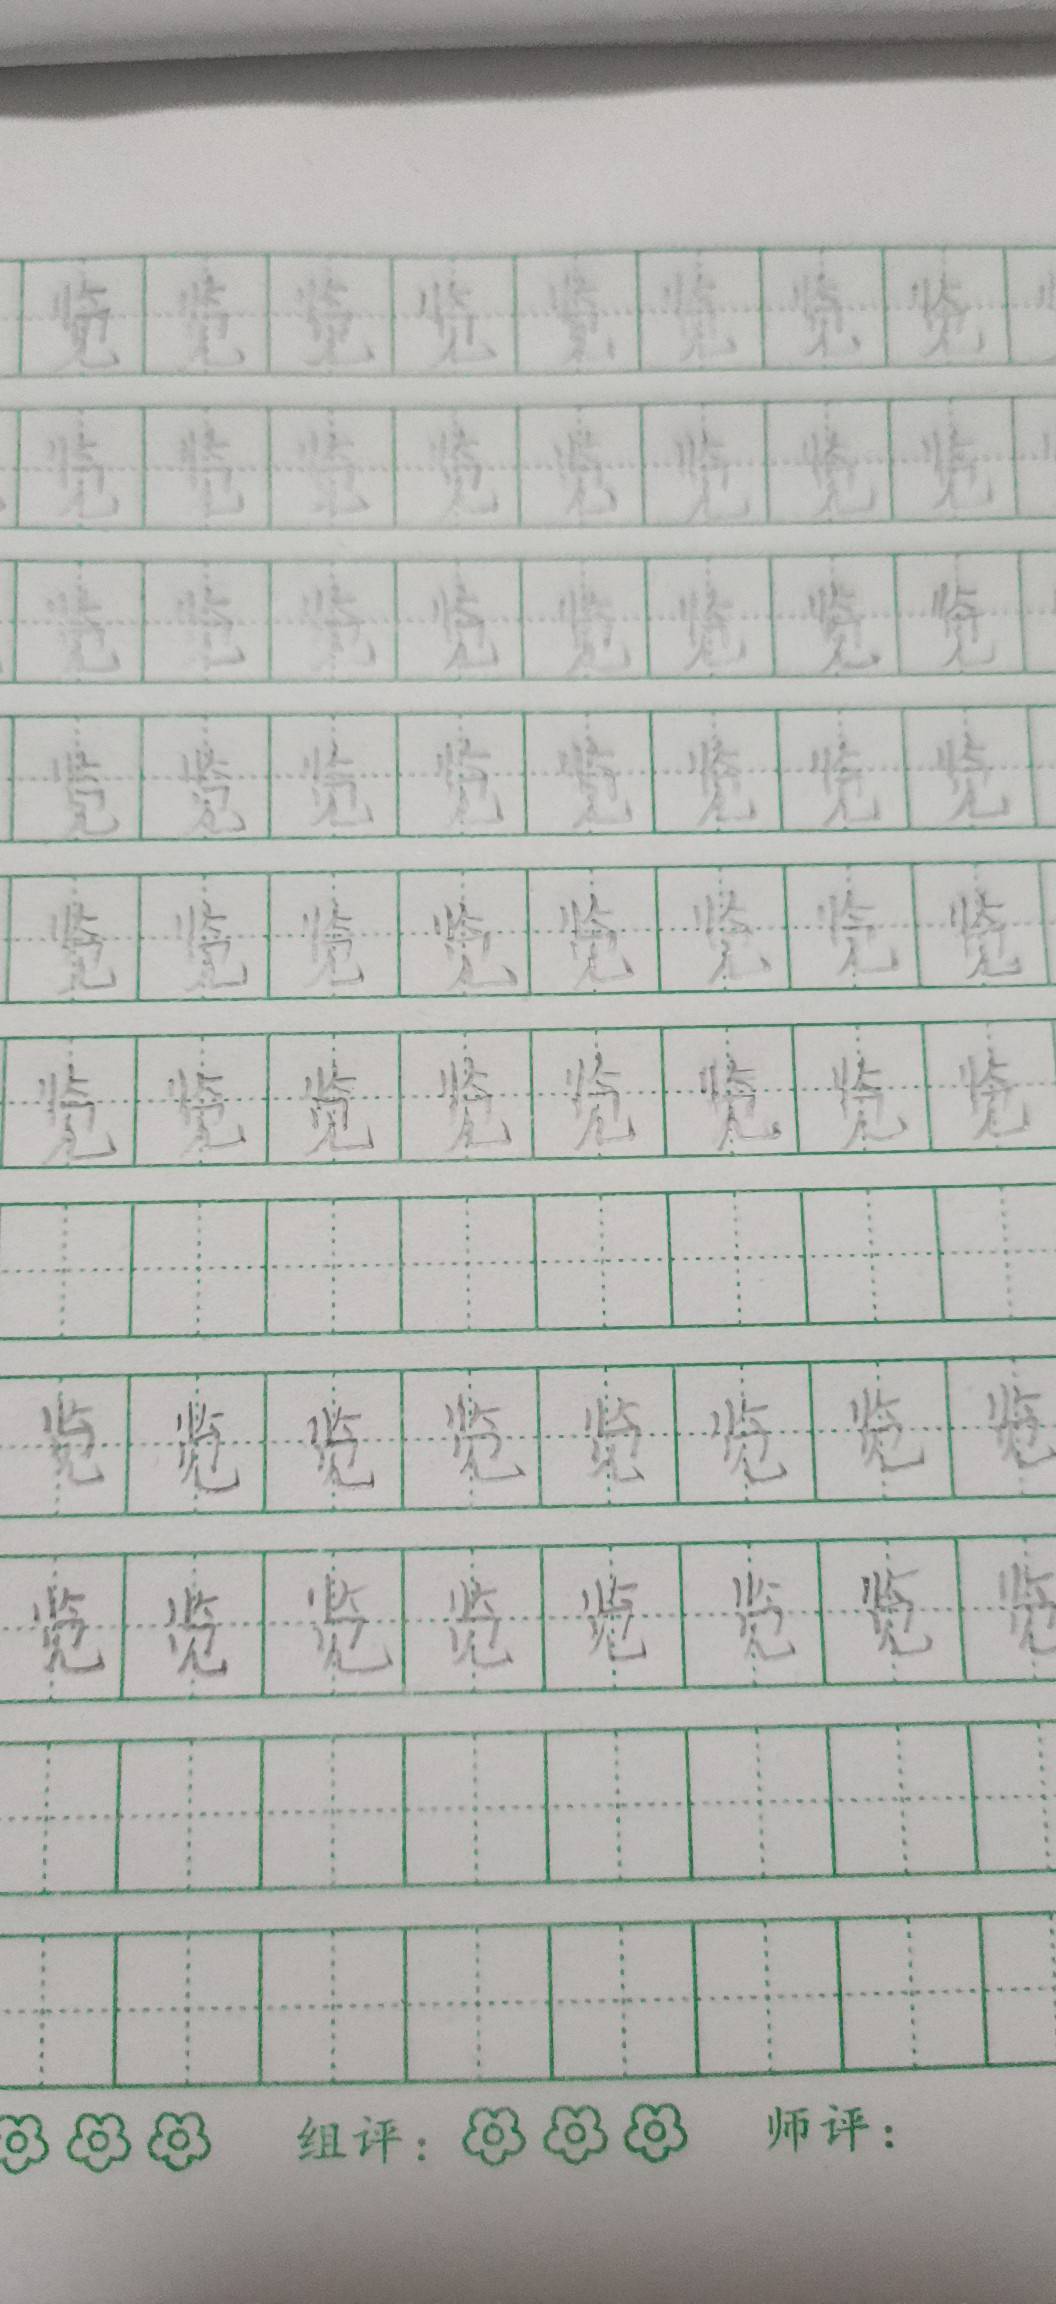 览览览览览览览览
览览览览览览览览
览览览览览览览览
览览览览览览览览
览览览览览览览览
览览览览览览览览
览览览览览览览览
览览览览览览览览
组评： 师评：